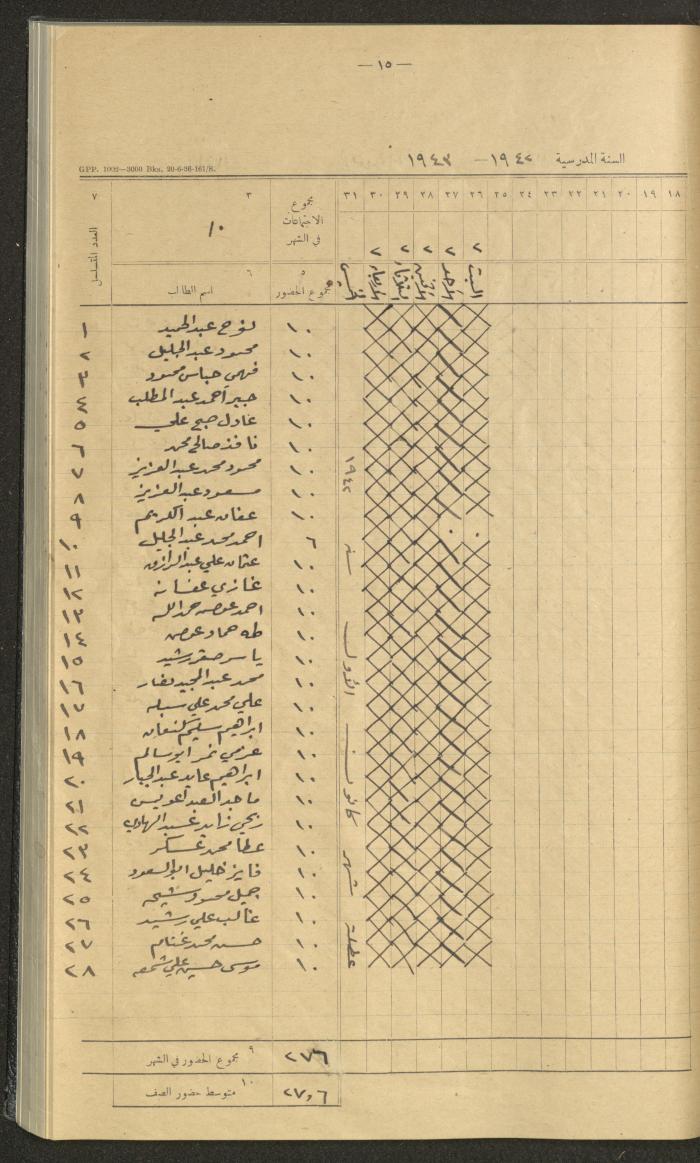 — ١٥ —
السنة المدرسية ١٩٤٢ — ١٩٤٣
GPP. 1002—3000 Bks. 20-6-36-161/S.
١٨ ١٩ ٢٠ ٢١ ٢٢ ٢٣ ٢٤ ٢٥ ٢٦ ٢٧ ٢٨ ٢٩ ٣٠ ٣١
مجموع الاجتماعات في الشهر
٣
١٠
٧
العدد المتسلسل
٢ ٢ ٢ ٢ ٢
السبت الاحد الاثنين الثلاثاء الاربعاء الخميس
٥ مجموع الحضور
٦ اسم الطالب
١٠ نوح عبد الحميد ١
١٠ محمود عبد الجليل ٢
١٠ فهمي عباس محمود ٣
١٠ جبر احمد عبد المطلب ٤
١٠ عادل صبح علي ٥
١٠ نافذ صالح محمد ٦
١٠ محمود محمد عبد العزيز ٧
١٠ مسعود عبد العزيز ٨
١٠ عفان عبد الكريم ٩
٦ احمد محمد عبد الجليل ١٠
١٠ عثمان علي عبد الرازق ١١
١٠ غازي ١٢
١٠ احمد عوض حمد الله ١٣
١٠ طه حماد عوض ١٤
١٠ ياسر صقر رشيد ١٥
١٠ محمد عبد المجيد ١٦
١٠ علي محمد علي ١٧
١٠ ابراهيم سليم كنعان ١٨
١٠ عزمي نمر ابو سالم ١٩
١٠ ابراهيم عايد عبد الجبار ٢٠
١٠ ماجد العبد عويس ٢١
١٠ ربحي زايد عبد الهادي ٢٢
١٠ عطا محمد عسكر ٢٣
١٠ فايز خليل ابو السعود ٢٤
١٠ جميل محمود شيخه ٢٥
١٠ غالب علي رشيد ٢٦
١٠ حسن محمد غنام ٢٧
١٠ موسى حسين علي ٢٨
عطلة شهر كانون الاول سنة ١٩٤٢
٩ مجموع الحضور في الشهر ٢٧٦
١٠ متوسط حضور الصف ٢٧,٦